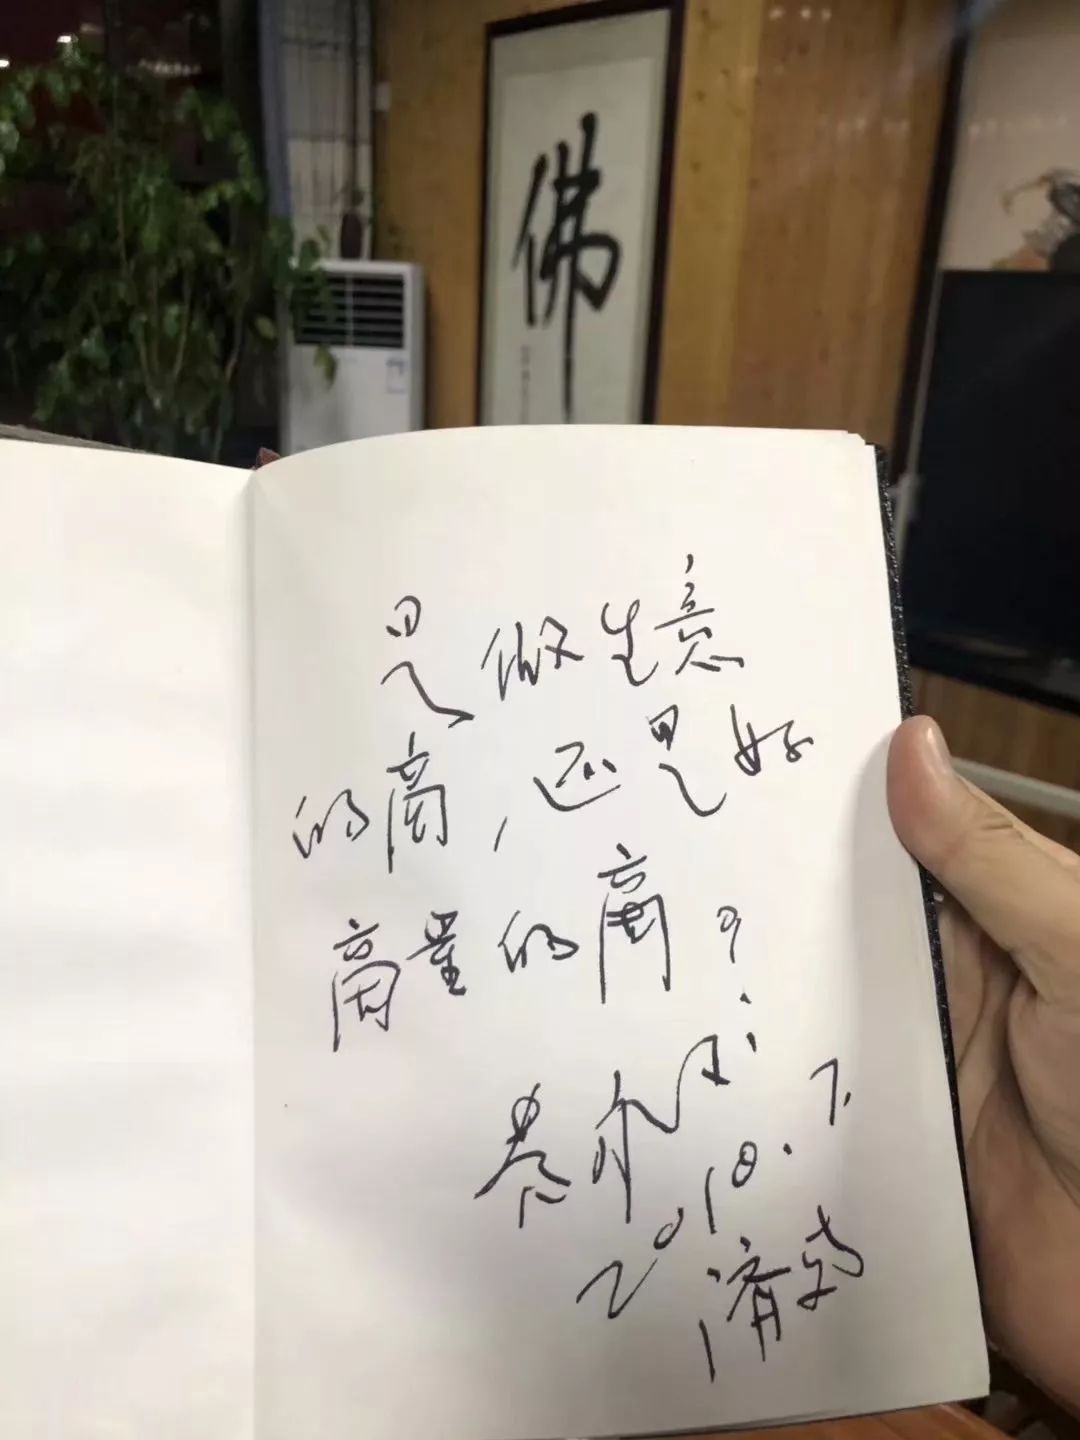 佛
是做生意
的商,还是好
商量的商?
2018.7.
济南